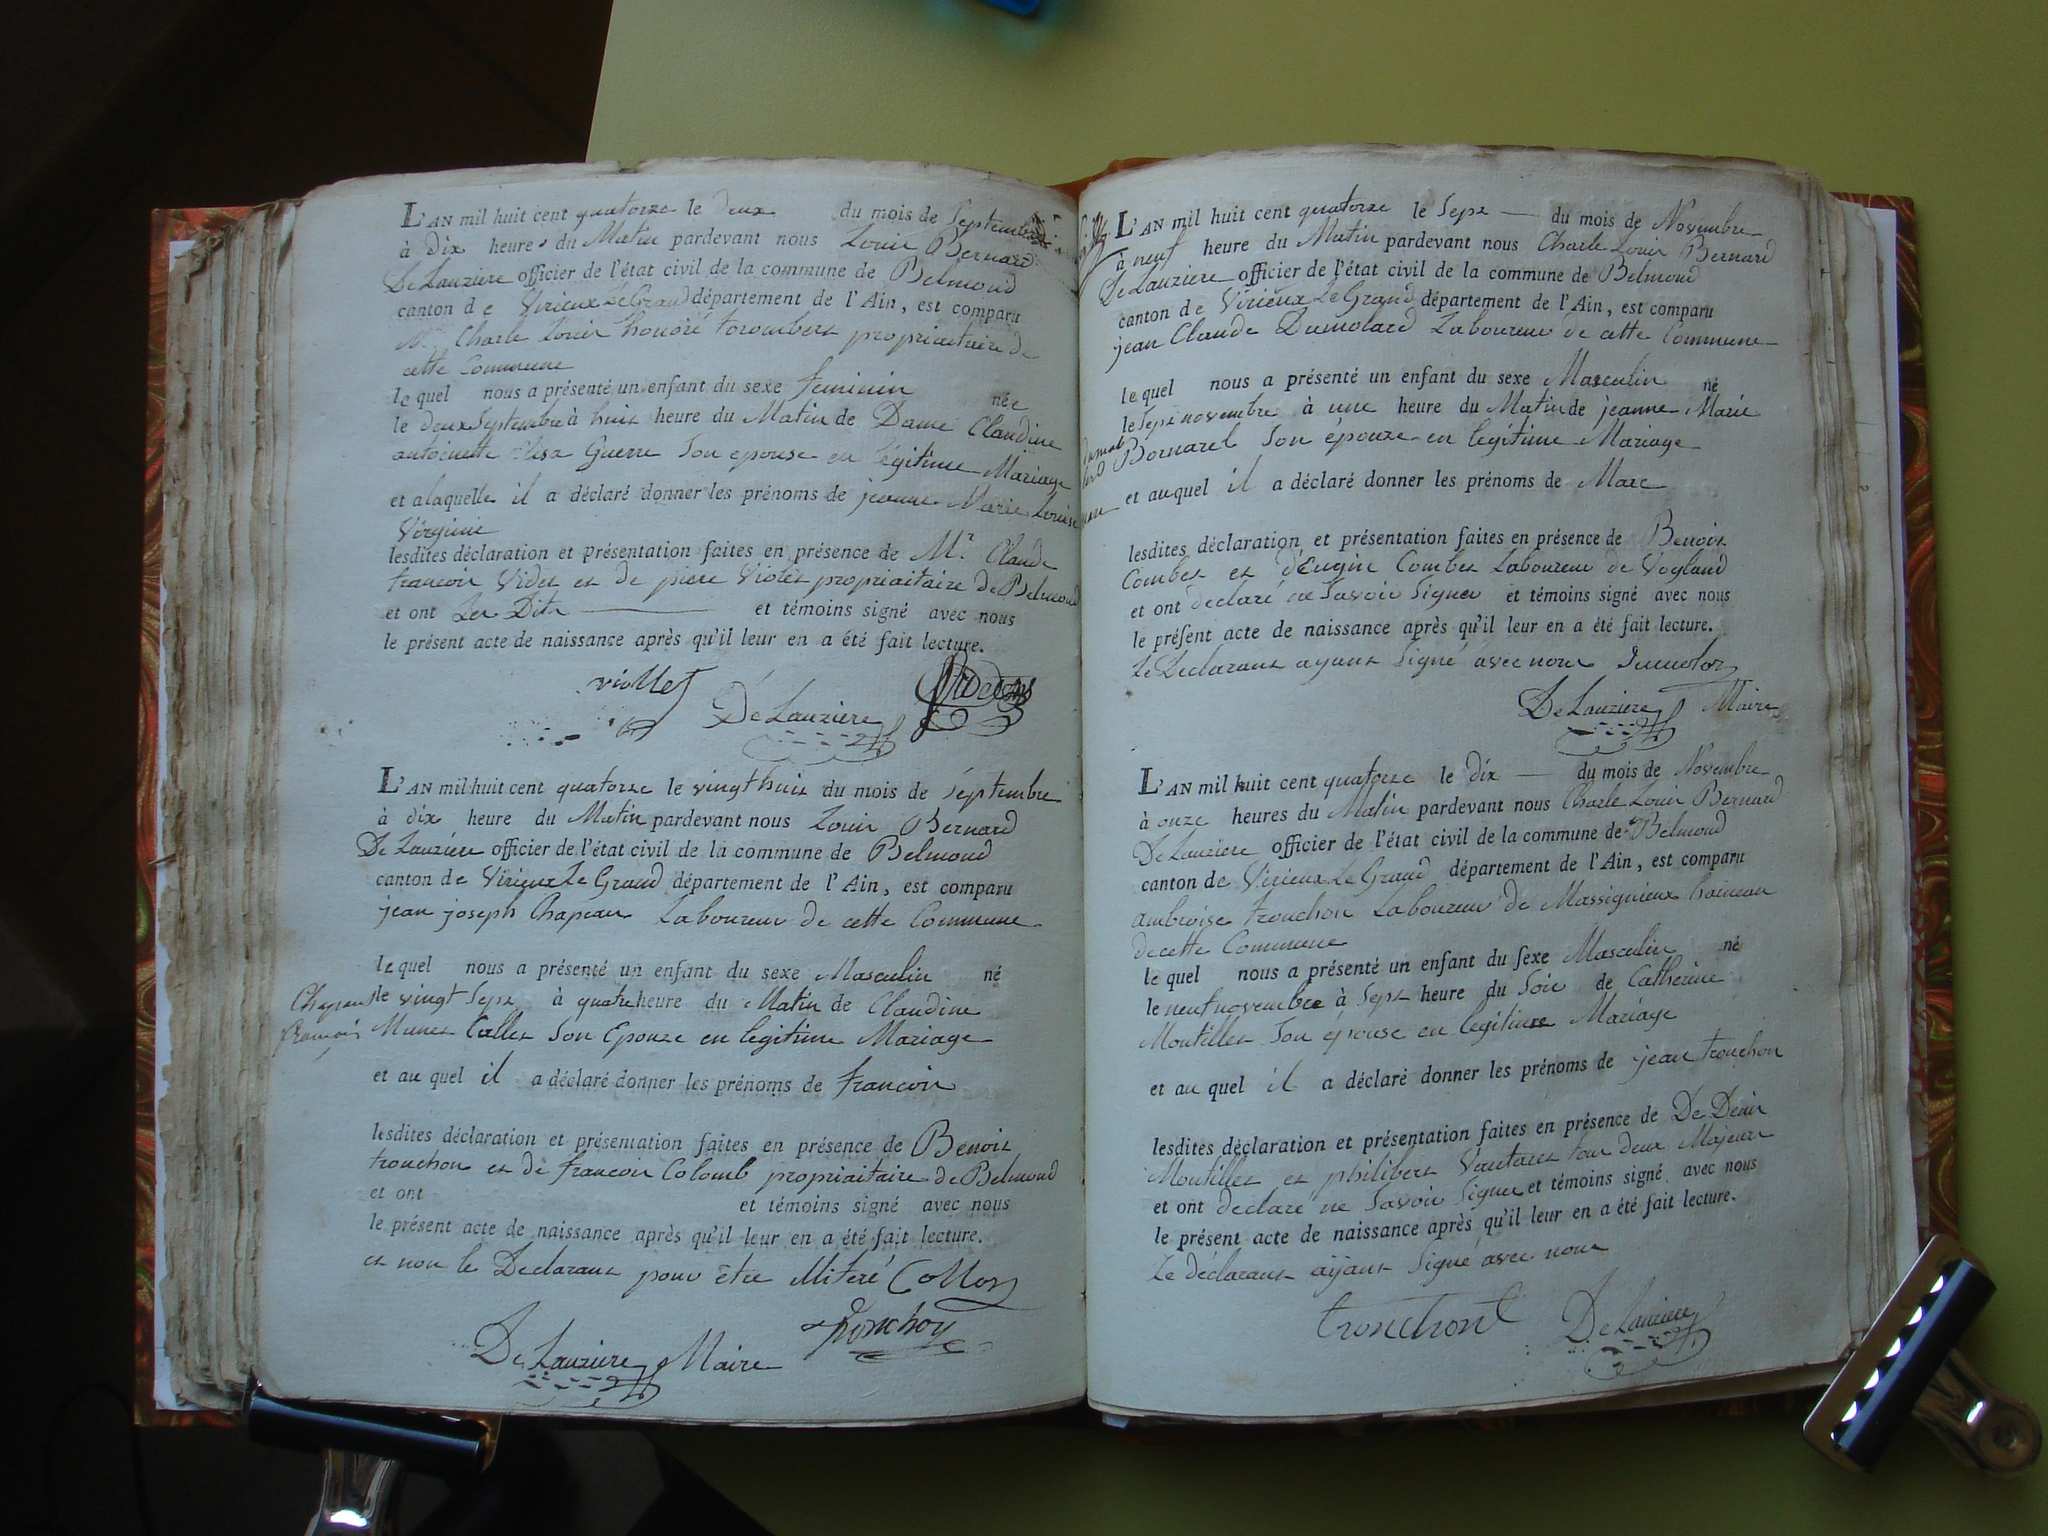 L'AN mil huit cent quatorze le deux du mois de Septembre
à Dix heure du Matin pardevant nous Louis Bernard
De Lauziere officier de l'état civil de la commune de Belmond
canton de Virieux Le Grand département de l'Ain, est comparu
Mr Charle Louis honoré trombert propriaitaire de
cette Commune
le quel nous a présenté un enfant du sexe feminin née
le deux Septembre à huit heure du Matin de Dame Claudine
antoinette Elisa Guerre Son epouse en légitime Mariage
et a laquelle il a déclaré donner les prénoms de jeanne Marie Louise
Virginie
lesdites déclaration et présentation faites en présence de Mr Claude
francois Videt et de piere Violet propriaitaire de Belmond
et ont Les Dits et témoins signé avec nous
le présent acte de naissance après qu'il leur en a été fait lecture.
viollet De Lauziere
L'AN mil huit cent quatorze le vingt huit du mois de Septembre
à dix heure du Matin pardevant nous Louis Bernard
De Lauziere officier de l'état civil de la commune de Belmond
canton de Virieux Le Grand département de l'Ain, est comparu
jean joseph Chapeau Laboureur de cette Commune
le quel nous a présenté un enfant du sexe Masculin né
le vingt Sept à quatre heure du Matin de Claudine
Chapeau
françois
Munet Callet Son Epouze en légitime Mariage
et au quel il a déclaré donner les prénoms de francois
lesdites déclaration et présentation faites en présence de Benoit
tronchon et de francois Colomb propriaitaire de Belmond
et ont et témoins signé avec nous
le présent acte de naissance après qu'il leur en a été fait lecture.
et non le Déclarant pour être Miteré Collon
tronchon
De Lauziere Maire
L'AN mil huit cent quatorze le Sept du mois de Novembre
à neuf heure du Matin pardevant nous Charle Louis Bernard
De Lauziere officier de l'état civil de la commune de Belmond
canton de Virieux Le Grand département de l'Ain, est comparu
jean Claude Dumolard Laboureur de cette Commune
le quel nous a présenté un enfant du sexe Masculin né
le Sept novembre à une heure du Matin de jeanne Marie
Bornarel Son épouze en legitime Mariage
et au quel il a déclaré donner les prénoms de Marc
lesdites déclaration et présentation faites en présence de Benoit
Combet et d'Eugin Combet Laboureur de Vogland
et ont declaré ne Savoir Signer et témoins signé avec nous
le présent acte de naissance après qu'il leur en a été fait lecture.
Le Déclarant ayant Signé avec nous Dumolor
De Lauziere Maire
L'AN mil huit cent quatorze le dix du mois de Novembre
à onze heures du Matin pardevant nous Charle Louis Bernard
De Lauziere officier de l'état civil de la commune de Belmond
canton de Virieux Le Grand département de l'Ain, est comparu
ambroise tronchon Laboureur de Massignieux hameau
de cette Commune
le quel nous a présenté un enfant du sexe Masculin né
le neuf novembre à Sept heure du Soir de Catherine
Montillet Son épouse en legitime Mariage
et au quel il a déclaré donner les prénoms de jean tronchon
lesdites déclaration et présentation faites en présence de De Denis
Montillet et philibert Vautaret tous deux Majeurs
et ont declare ne Savoir Signer et témoins signé avec nous
le présent acte de naissance après qu'il leur en a été fait lecture.
Le déclarant ayant Signé avec nous
tronchont De Lauziere